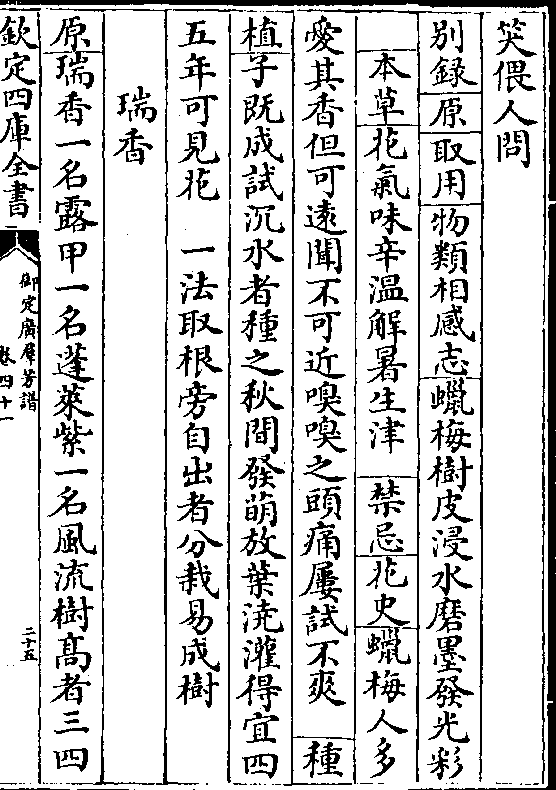 笑偎人問
別録原取用物類相感志蠟梅樹皮浸水磨墨發光彩
本草花氣味辛温解暑生津　禁忌花史蠟梅人多
愛其香但可遠聞不可近嗅嗅之頭痛屢試不爽　種
植子既成試沉水者種之秋間發萌放葉澆灌得宜四
五年可見花　一法取根旁自出者分栽易成樹
瑞香
原瑞香一名露甲一名蓬萊紫一名風流樹髙者三四
欽定四庫全書
御定廣羣芳譜
卷四十一
二十五